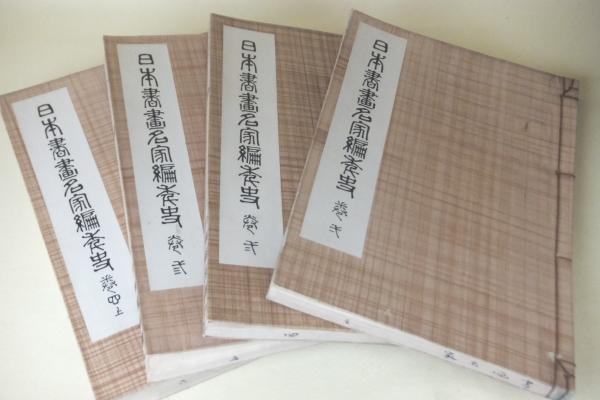 日本書畫名家編年史 卷弌
日本書畫名家編年史 卷弍
日本書畫名家編年史 卷弎
日本書畫名家編年史 卷四上
四